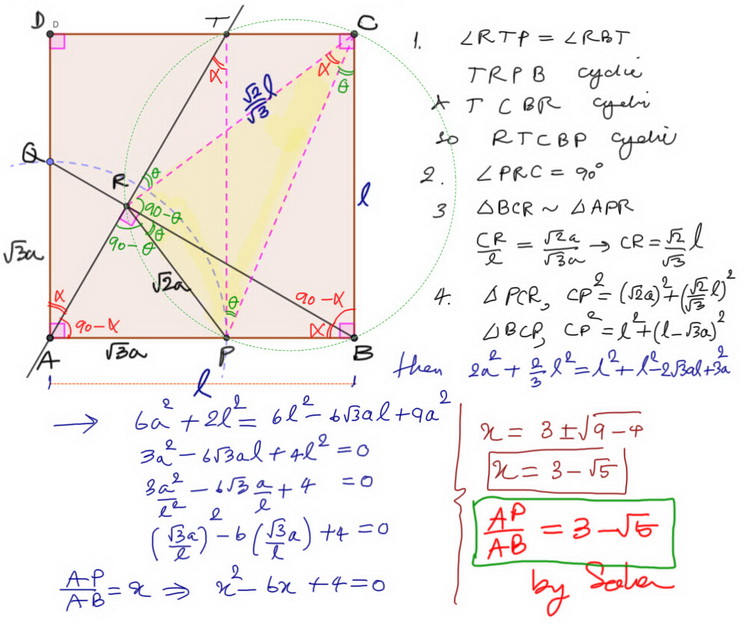 D D T C
α α θ
√2/√3 l
Q R θ
90-θ
90-θ θ
l
√3a √2a
α θ 90-α
90-α α
A √3a P B
l
1. ∠RTP = ∠RBT
TRPB cyclic
∧ TCBR cyclic
so RTCBP cyclic
2. ∠PRC = 90°
3 △BCR ~ △APR
CR/l = √2a/√3a → CR = √2/√3 l
4. △PCR, CP² = (√2a)² + (√2/√3 l)²
△BCP, CP² = l² + (l-√3a)²
then 2a² + 2/3 l² = l² + l² - 2√3al + 3a²
→ 6a² + 2l² = 6l² - 6√3al + 9a²
3a² - 6√3al + 4l² = 0
3a²/l² - 6√3 a/l + 4 = 0
(√3a/l)² - 6(√3a/l) + 4 = 0
AP/AB = x ⇒ x² - 6x + 4 = 0
x = 3 ± √9-4
x = 3 - √5
AP/AB = 3 - √5
by